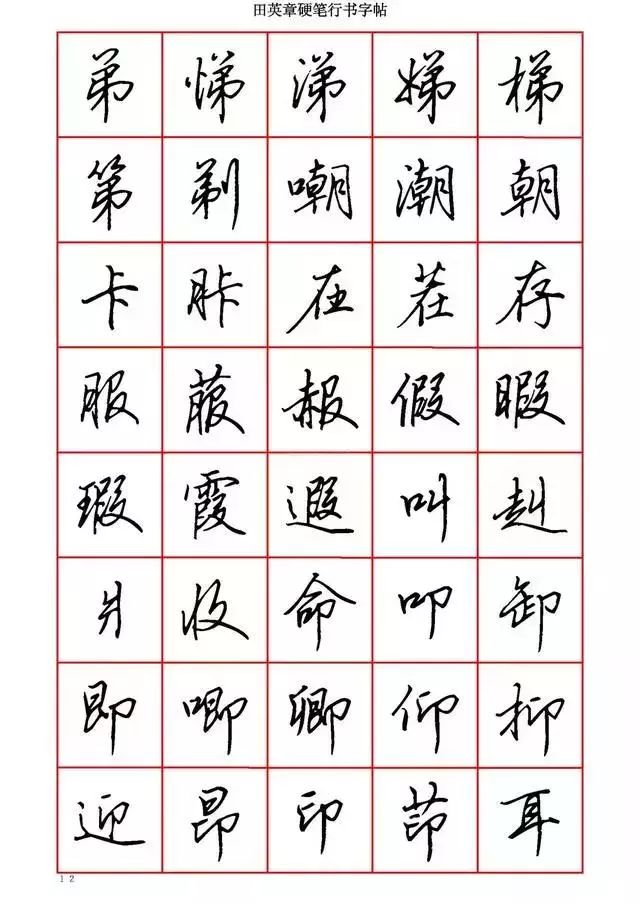 田英章硬笔行书字帖
弟 悌 涕 娣 梯
第 剃 嘲 潮 朝
卡 胩 在 茬 存
服 菔 赧 假 暇
瑕 霞 遐 叫 赳
收 命 叩 卸
即 唧 卿 仰 抑
迎 昂 印 茚 耳
12